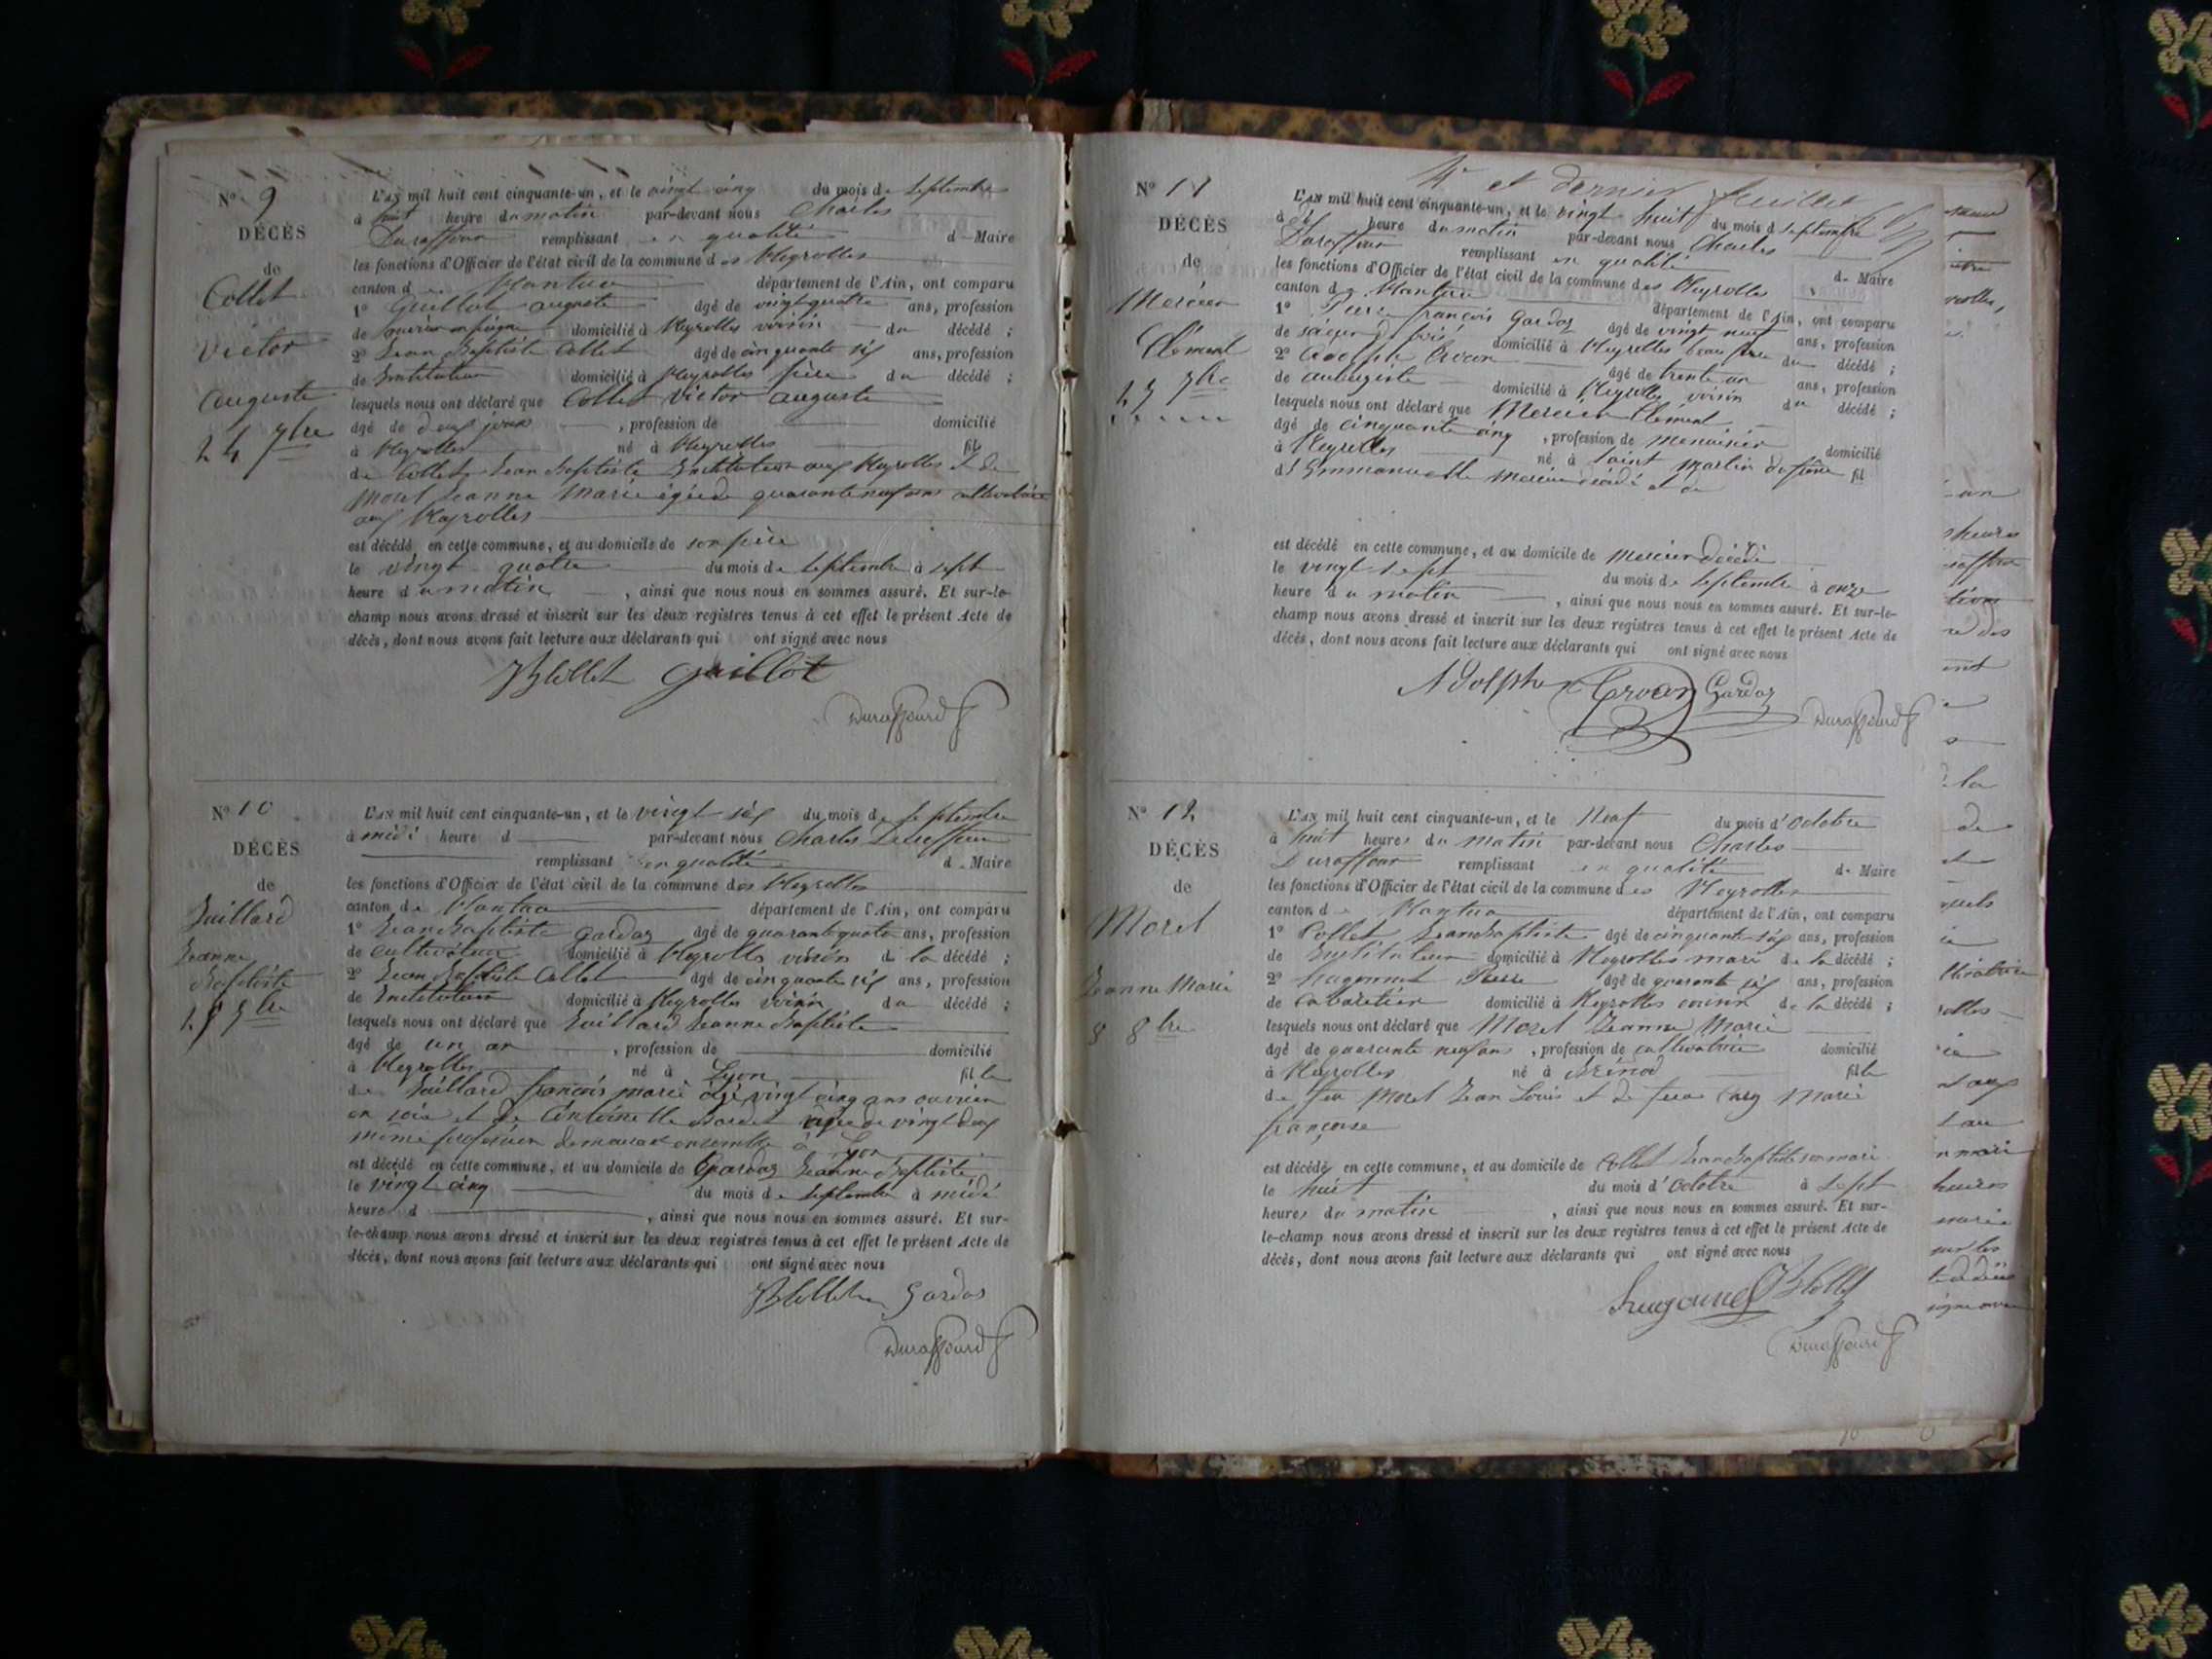 N° 9
DÉCÈS
de
Collet
Victor
Auguste
24 7bre
L'AN mil huit cent cinquante-un, et le vingt cinq du mois de Septembre
à huit heure du matin par-devant nous Charles
Duraffour remplissant en qualité de Maire
les fonctions d'Officier de l'état civil de la commune des Neyrolles
canton de Nantua département de l'Ain, ont comparu
1° Guillot Auguste âgé de vingt quatre ans, profession
de domicilié à Neyrolles voisin du décédé ;
2° Jean Baptiste Collet âgé de cinquante six ans, profession
de Instituteur domicilié à Neyrolles père du décédé ;
lesquels nous ont déclaré que Collet Victor Auguste
âgé de deux jours , profession de domicilié
à Neyrolles né à Neyrolles fils
de Collet Jean Baptiste Instituteur aux Neyrolles et de
Morel Jeanne Marie âgée de quarante neuf ans cultivatrice
aux Neyrolles
est décédé en cette commune, et au domicile de son père
le vingt quatre du mois de Septembre à sept
heure du matin , ainsi que nous nous en sommes assuré. Et sur-le-
champ nous avons dressé et inscrit sur les deux registres tenus à cet effet le présent Acte de
décès, dont nous avons fait lecture aux déclarants qui ont signé avec nous
JB Collet Guillot
Duraffourd
N° 10
DÉCÈS
de
Juillard
Jeanne
Baptiste
25 7bre
L'AN mil huit cent cinquante-un, et le vingt six du mois de Septembre
à midi heure d par-devant nous Charles Duraffour
remplissant en qualité de Maire
les fonctions d'Officier de l'état civil de la commune des Neyrolles
canton de Nantua département de l'Ain, ont comparu
1° Jean Baptiste Gardaz âgé de quarante quatre ans, profession
de cultivateur domicilié à Neyrolles voisin de la décédé ;
2° Jean Baptiste Collet âgé de cinquante six ans, profession
de Instituteur domicilié à Neyrolles voisin du décédé ;
lesquels nous ont déclaré que Juillard Jeanne Baptiste
âgé de un an , profession de domicilié
à Neyrolles né à Lyon fille
de Juillard françois marie âgé vingt cinq ans ouvrier
en soie et de Antoinette Bardet âgée de vingt deux
même profession demeurant ensemble à Lyon
est décédé en cette commune, et au domicile de Gardaz Jeanne Baptiste
le vingt cinq du mois de Septembre à midi
heure d , ainsi que nous nous en sommes assuré. Et sur-
le-champ nous avons dressé et inscrit sur les deux registres tenus à cet effet le présent Acte de
décès, dont nous avons fait lecture aux déclarants qui ont signé avec nous
JB Collet Gardas
Duraffourd
4e et dernier feuillet
N° 11
DÉCÈS
de
Mercier
Clément
27 7bre
L'AN mil huit cent cinquante-un, et le vingt huit du mois d Septembre
à heure du matin par-devant nous Charles
Duraffour remplissant en qualité de Maire
les fonctions d'Officier de l'état civil de la commune des Neyrolles
canton de Nantua département de l'Ain, ont comparu
1° Pierre françois Gardaz âgé de vingt neuf ans, profession
de domicilié à Neyrolles beau frère du décédé ;
2° Adolphe Crocan âgé de trente un ans, profession
de aubergiste domicilié à Neyrolles voisin du décédé ;
lesquels nous ont déclaré que Mercier Clément
âgé de cinquante cinq , profession de menuisier domicilié
à Neyrolles né à Saint Martin du frêne fils
d'Emmanuelle Mercier décédé et de
est décédé en cette commune, et au domicile de Mercier décédé
le vingt sept du mois de Septembre à onze
heure du matin , ainsi que nous nous en sommes assuré. Et sur-le-
champ nous avons dressé et inscrit sur les deux registres tenus à cet effet le présent Acte de
décès, dont nous avons fait lecture aux déclarants qui ont signé avec nous
Adolphe Crocan Gardaz
Duraffourd
N° 12
DÉCÈS
de
Morel
Jeanne Marie
8 8bre
L'AN mil huit cent cinquante-un, et le Neuf du mois d'Octobre
à huit heures du matin par-devant nous Charles
Duraffour remplissant en qualité de Maire
les fonctions d'Officier de l'état civil de la commune des Neyrolles
canton de Nantua département de l'Ain, ont comparu
1° Collet Jean Baptiste âgé de cinquante six ans, profession
de Instituteur domicilié à Neyrolles mari de la décédé ;
2° Hugonnet Pierre âgé de quarante six ans, profession
de cabaretier domicilié à Neyrolles cousin de la décédé ;
lesquels nous ont déclaré que Morel Jeanne Marie
âgé de quarante neuf ans , profession de cultivatrice domicilié
à Neyrolles né à Brénod fille
de feu Morel Jean Louis et de feue Marie
françoise
est décédé en cette commune, et au domicile de Collet Jean Baptiste son mari
le huit du mois d'Octobre à Sept
heures du matin , ainsi que nous nous en sommes assuré. Et sur-
le-champ nous avons dressé et inscrit sur les deux registres tenus à cet effet le présent Acte de
décès, dont nous avons fait lecture aux déclarants qui ont signé avec nous
hugonnet JB Collet
Duraffourd